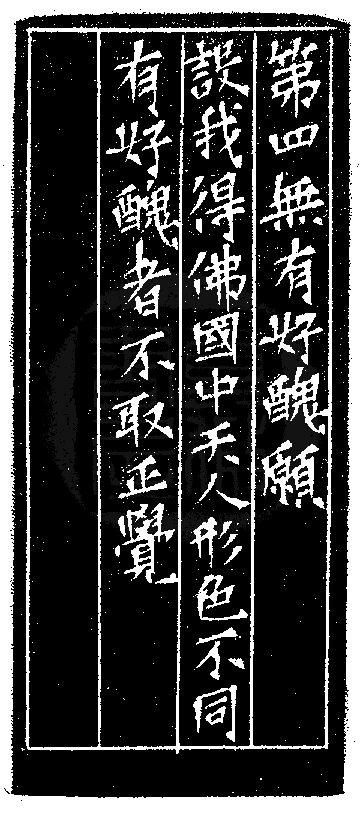 第四無有好醜願
設我得佛國中天人形色不同
有好醜者不取正覺